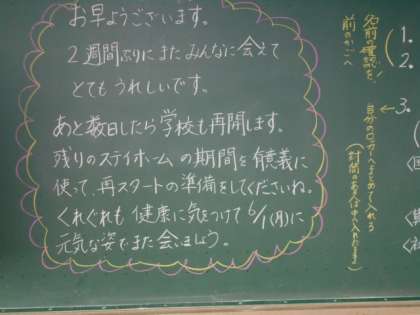 お早ようございます。
２週間ぶりにまたみんなに会えて
とてもうれしいです。
あと数日したら学校も再開します。
残りのステイホームの期間を有意義に
使って、再スタートの準備をしてくださいね。
くれぐれも健康に気をつけて6/1(月)に
元気な姿でまた会いましょう。
名前の確認を、
前のかごへ
自分のロッカーへまとめて入れる
1.
2.
3.